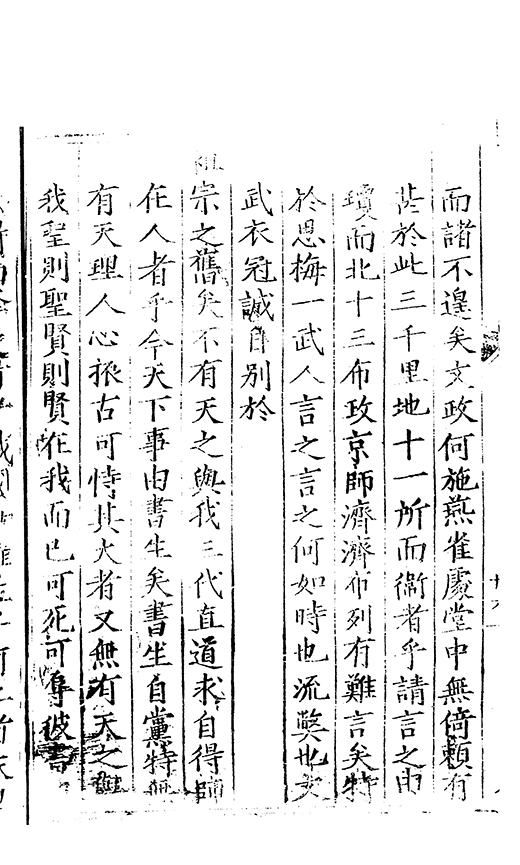 而諸不遑矣文政何施燕雀處堂中無倚賴有
甚於此三千里地十一所而衞者乎請言之由
瓊而北十三布政京師濟濟布列有難言矣特
於思梅一武人言之言之何如時也流獘也文
武衣冠誠自別於
祖宗之舊矣不有天之與我三代直道求自得師
在人者乎今天下事由書生矣書生自黨特
有天理人心振古可恃其大者又無有天之與
我聖則聖賢則賢在我而已可死可辱彼書